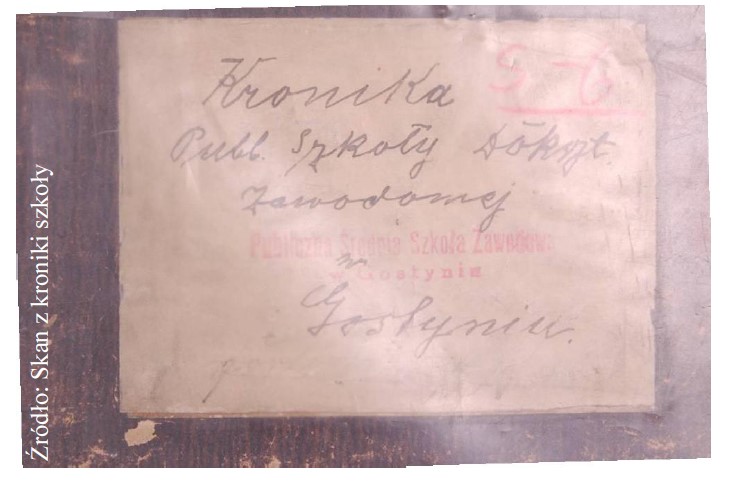 Kronika
S-6
Publ. Szkoły Dokszt.
Zawodowej
Publiczna Średnia Szkoła Zawodowa
w Gostyniu
w
Gostyniu.
Źródło: Skan z kroniki szkoły